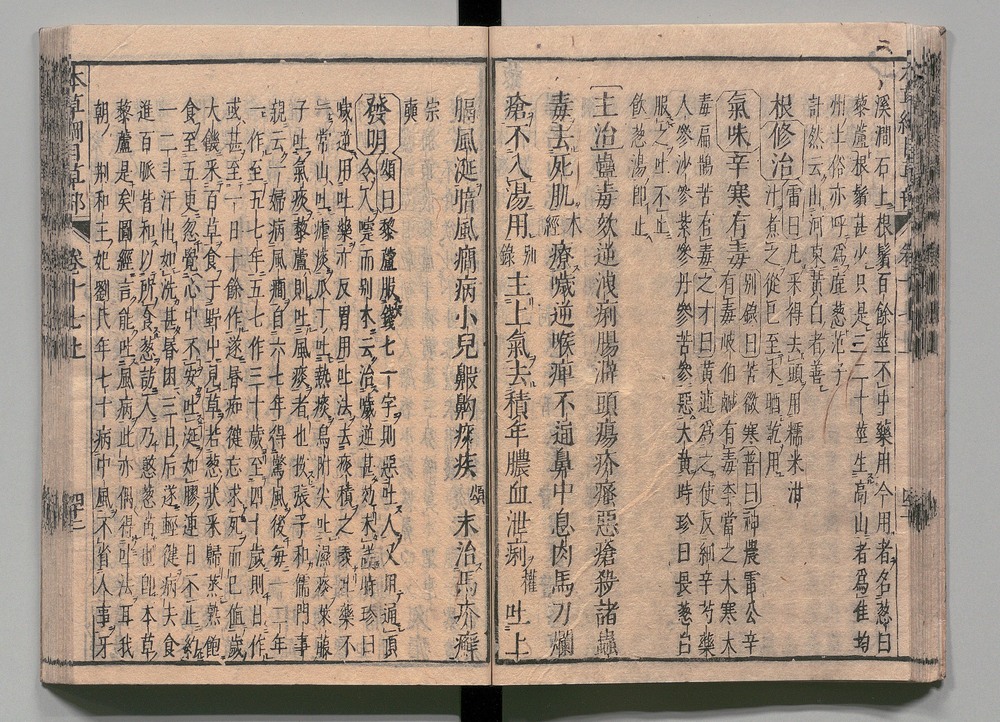 溪澗石上根鬚百餘莖不中藥用今用者名葱白
藜蘆根鬚甚少只是三二十莖生高山者爲佳均
州土俗亦呼爲鹿葱范子
計然云出河東黃白者善
根修治雷曰凡采得去頭用糯米泔
汁煮之從巳至未晒乾用
氣味辛寒有毒別錄曰苦微寒普曰神農雷公辛
有毒岐伯鹹有毒李當之大寒大
毒扁鵲苦有毒之才曰黃連爲之使反細辛芍藥
人參沙參紫參丹參苦參惡大黃時珍曰畏葱白
服之吐不止
飲葱湯即止
主治蠱毒欬逆洩痢腸澼頭瘍疥瘙惡瘡殺諸蟲
毒去死肌本經療噦逆喉痺不通鼻中息肉馬刀爛
瘡不入湯用別錄主上氣去積年膿血泄痢權吐上
膈風涎暗風癇病小兒䶎齁痰疾頌末治馬疥癬
宗奭
發明頌曰藜蘆服錢匕一字則惡吐人又用通頂
令人嚏而別本云治噦逆甚效未詳時珍曰
噦逆用吐藥亦反胃用吐法去痰積之義吐藥不
一常山吐瘧痰瓜丁吐熱痰烏附尖吐濕痰萊菔
子吐氣痰藜蘆則吐風痰者也按張子和儒門事
親云一婦病風癇自六七年得驚風後每一二年
一作至五七年五七作三十歲至四十歲則日作
或甚至一日十餘作遂昏痴健忘求死而已值歲
大饑采百草食于野中見草若葱狀采歸蒸熟飽
食至五更忽覺心中不安吐涎如膠連日不止約
一二斗汗出如洗甚昏困三日后遂輕健病去食
進百脈皆和以所食葱訪人乃憨葱苗也即本草
藜蘆是矣圖經言能吐風病此亦偶得吐法耳我
朝荆和王妃劉氏年七十病中風不省人事牙
本草綱目草部
卷十七上